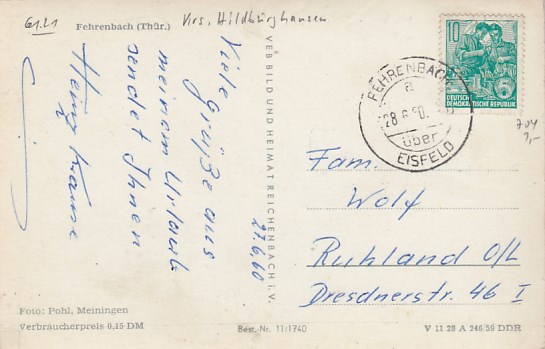 61.21
Fehrenbach (Thür.)
Krs. Hildburghausen
Viele Grüße aus
meinem Urlaub
sendet Ihnen
Heinz Krause
27.6.60
VEB BILD UND HEIMAT REICHENBACH I. V.
10
DEUTSCHE
DEMOKRATISCHE REPUBLIK
FEHRENBACH
a
28.6.60.
über
EISFELD
704
1,-
Fam.
Wolf
Ruhland O/L
Dresdnerstr. 46 I
Foto: Pohl, Meiningen
Verbraucherpreis 0,15 DM
Best.-Nr. 11/1740
V 11 28 A 246/59 DDR